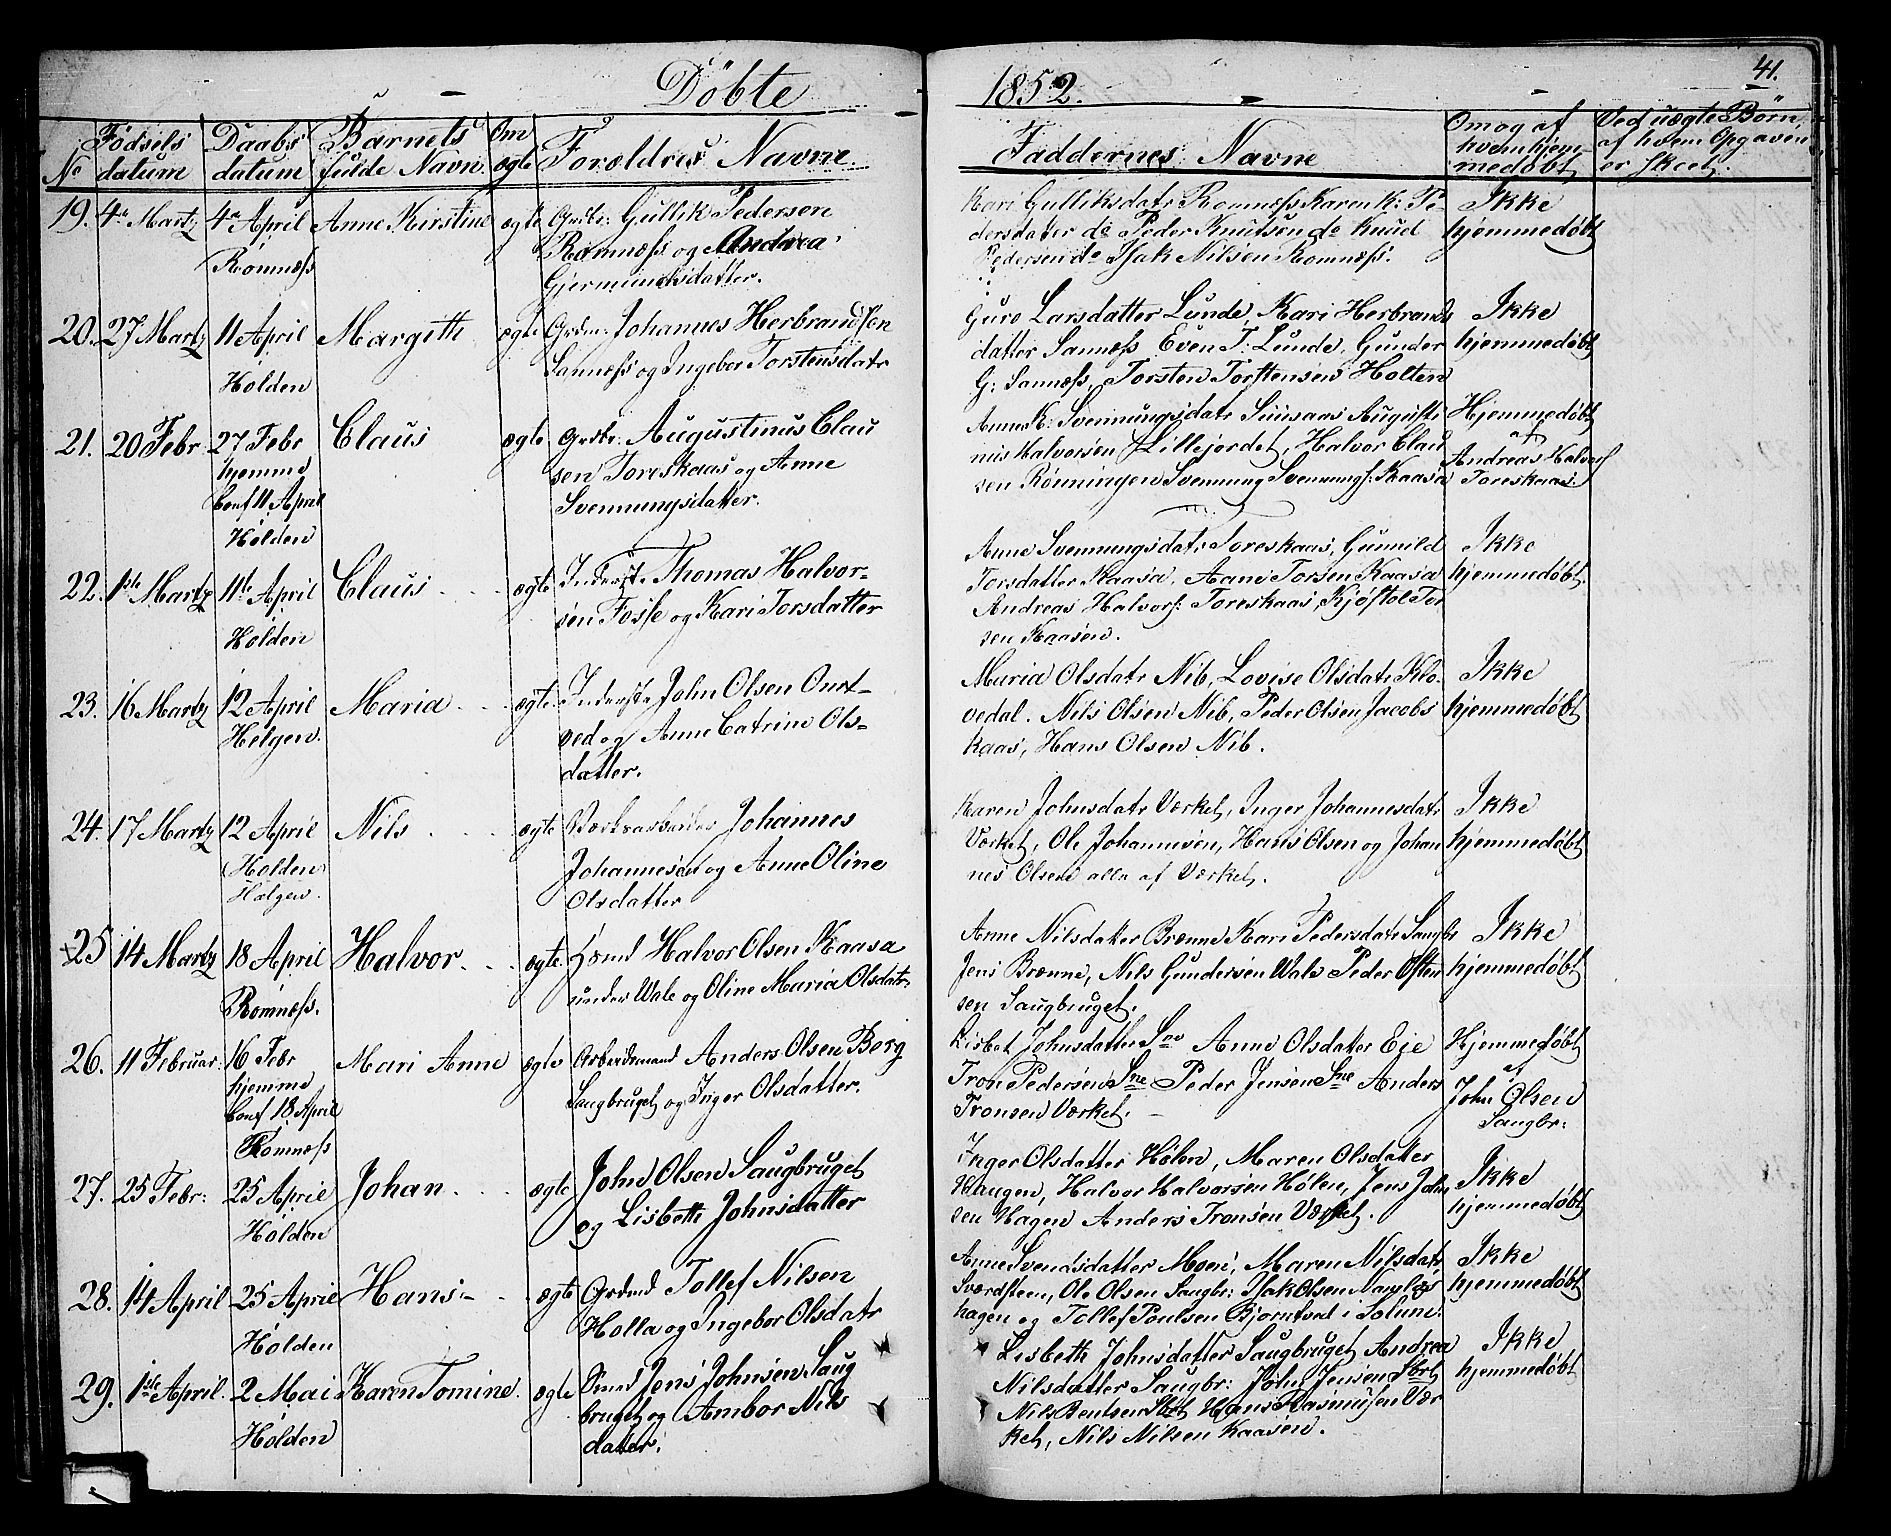 Döbte
1852.
41.
No
Födsels datum
Daabs datum
Barnets fulde Navn.
Om ægte
Forældres Navne
Faddernes Navne
Om og af hvem hjemmedøbt
Ved uægte Börn, af hvem Opgaven er skeet.
19. 4de Martz
4de April Romnæss
Anne Kirstine
ægte
Grdbr: Gullik Pedersen
Romnæss og Andrea
Gjermundsdatter.
Kari Gulliksdatr Romnæss Karen K: Pe-
dersdatter do Peder Knutsen do Knud
Pedersen do Isak Nilsen Romnæss.
Ikke
hjemmedøbt
20. 27 Martz
11 April Holden
Margith
ægte
Grdm: Johannes Herbrandsen
Sannæss og Ingebor Torstensdatr
Guro Larsdatter Lunde, Kari Herbrands
datter Sannæss Even T: Lunde, Gunder
G: Sannæss, Torsten Torstensen Holten
Ikke
hjemmedøbt
21. 20 Febr
27 Febr
hjemme
Conf 11 April
Holden
Claus
ægte
Grdbr: Augustinus Clau
sen Toreskaas og Anne
Svennungsdatter.
Anne K: Svennungsdatr Augusti
nus Halvorsen Lillejordet, Halvor Clau
sen Rønningen Svennung Svennungs: Kaasa
Hjemmedøbt
af
Andreas Halvors
Toreskaas
22. 1ste Martz
11te April
Holden
Claus
ægte
Inderst: Thomas Halvor-
sen Fosse og Kari Torsdatter
Anne Svennungsdatr Toreskaas, Gunnild
Torsdatter Kaasa, Aani Torsen Kaasa
Andreas Halvors: Toreskaas, Kjøstol Tor
sen Kaasen.
Ikke
hjemmedøbt
23. 16 Martz
12 April
Helgen.
Maria
ægte
Inderste John Olsen
og Anne Catrine Ols-
datter.
Maria Olsdatr Nib, Lovise Olsdatr Klo
vedal. Nils Olsen Nib, Peder Olsen Jacobs
kaas, Hans Olsen Nib.
Ikke
hjemmedøbt
24. 17 Martz
12 April
Holden
Helgen.
Nils
ægte
Værksarbeider Johannes
Johannesen og Anne Oline
Olsdatter
Karen Johnsdatr Værket, Inger Johannesdatr
Værket, Ole Johannesen, Hans Olsen og Johan
nes Olsen alle af Værket.
Ikke
hjemmedøbt
25 14 Martz
18 April
Romnæss.
Halvor
ægte
Halvor Olsen Kaasa
under Wale og Oline Maria Olsdatr
Anne Nilsdatter Brenne Kari Pedersdatr Saugbr
Jens Brenne, Nils Gundersen Wale Peder Osten
sen Saugbruget.
Ikke
hjemmedøbt
26. 11 Februar:
16 Febr
hjemme
Conf 18 April
Romnæss
Mari Anne
ægte
Arbeidsmand Anders Olsen Borg
Saugbruget og Inger Olsdatter.
Lisbet Johnsdatter Anne Olsdatter Eie
Tron Pedersen Sne Peder Jensen Sne Anders
Tronsen Værket.
Hjemmedøbt
af
John Olsen
Saugbr:
27. 25 Febr:
25 April
Holden
Johan
ægte
John Olsen Saugbruget
og Lisbeth Johnsdatter
Inger Olsdatter Holen, Maren Olsdatter
Haugen, Halvor Halvorsen Holen, Jens John
sen Hagen Anders Tronsen Værket.
Ikke
hjemmedøbt
28. 14 April
25 April
Holden
Hans
ægte
Grdmd Tollef Nilsen
Holla og Ingebor Olsdatr
Anne Svendsdatter Moen, Maren Nilsdatr
Sværdsteen, Ole Olsen Saugbr: Isak Olsen
hagen og Tollef Poulsen Bjorntved i Solum.
Ikke
hjemmedøbt
29. 1ste April
2 Mai
Holden
Karen Tomine
ægte
Smed Jens Johnsen Saug
bruget og Ambor Nils
datter.
Lisbeth Johnsdatter Saugbruget Andrea
Nilsdatter Saugbr: John Jensen
Nils Bentsen Hans Rasmusen Vær
ket, Nils Nilsen Kaasen.
Ikke
hjemmedøbt